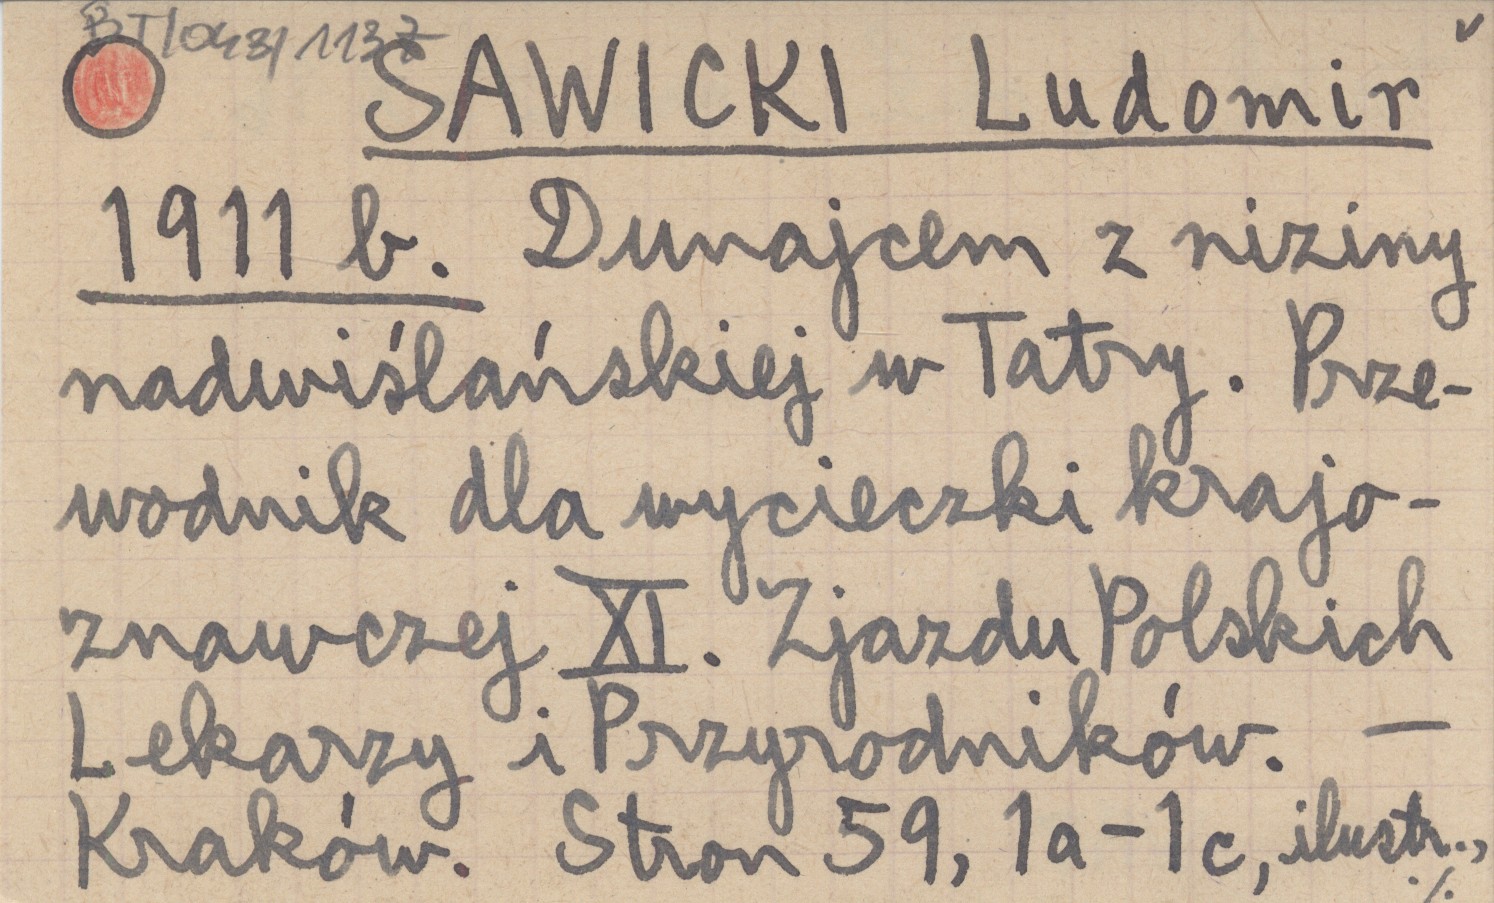 BT/043/1137
SAWICKI Ludomir
1911 b. Dunajcem z niziny
nadwiślańskiej w Tatry. Prze-
wodnik dla wycieczki krajo-
znawczej XI. Zjazdu Polskich
Lekarzy i Przyrodników. —
Kraków. Stron 59, 1a-1c, ilustr.,
./.